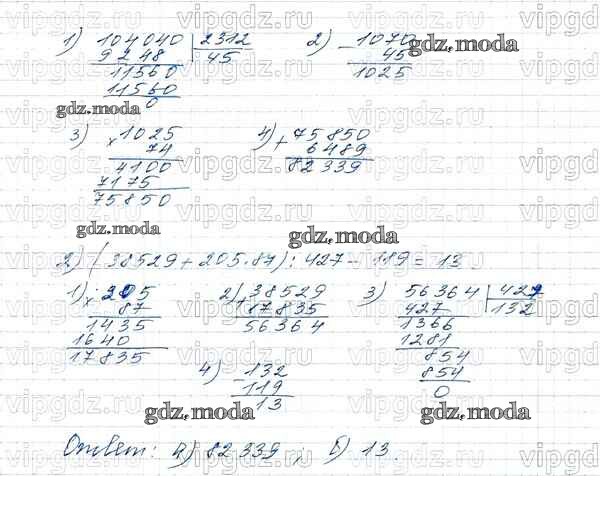 1) 104040 | 2312 2) - 1070
9248 45 45
11560 1025
11560
0
3) × 1025 4) + 75850
74 6489
4100 82339
7175
75850
2) (38529 + 205·87) : 427 - 119 = 13.
1) × 205 2) + 38529 3) 56364 | 427
87 17835 427 132
1435 56364 1366
1640 1281
17835 854
4) - 132 854
119 0
13
Ответ: а) 82339; б) 13.
gdz.moda
gdz.moda
gdz.moda
gdz.moda
gdz.moda
gdz.moda
vipgdz.ru